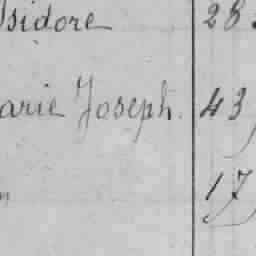 Isidore 28
arie Joseph. 43
n 17